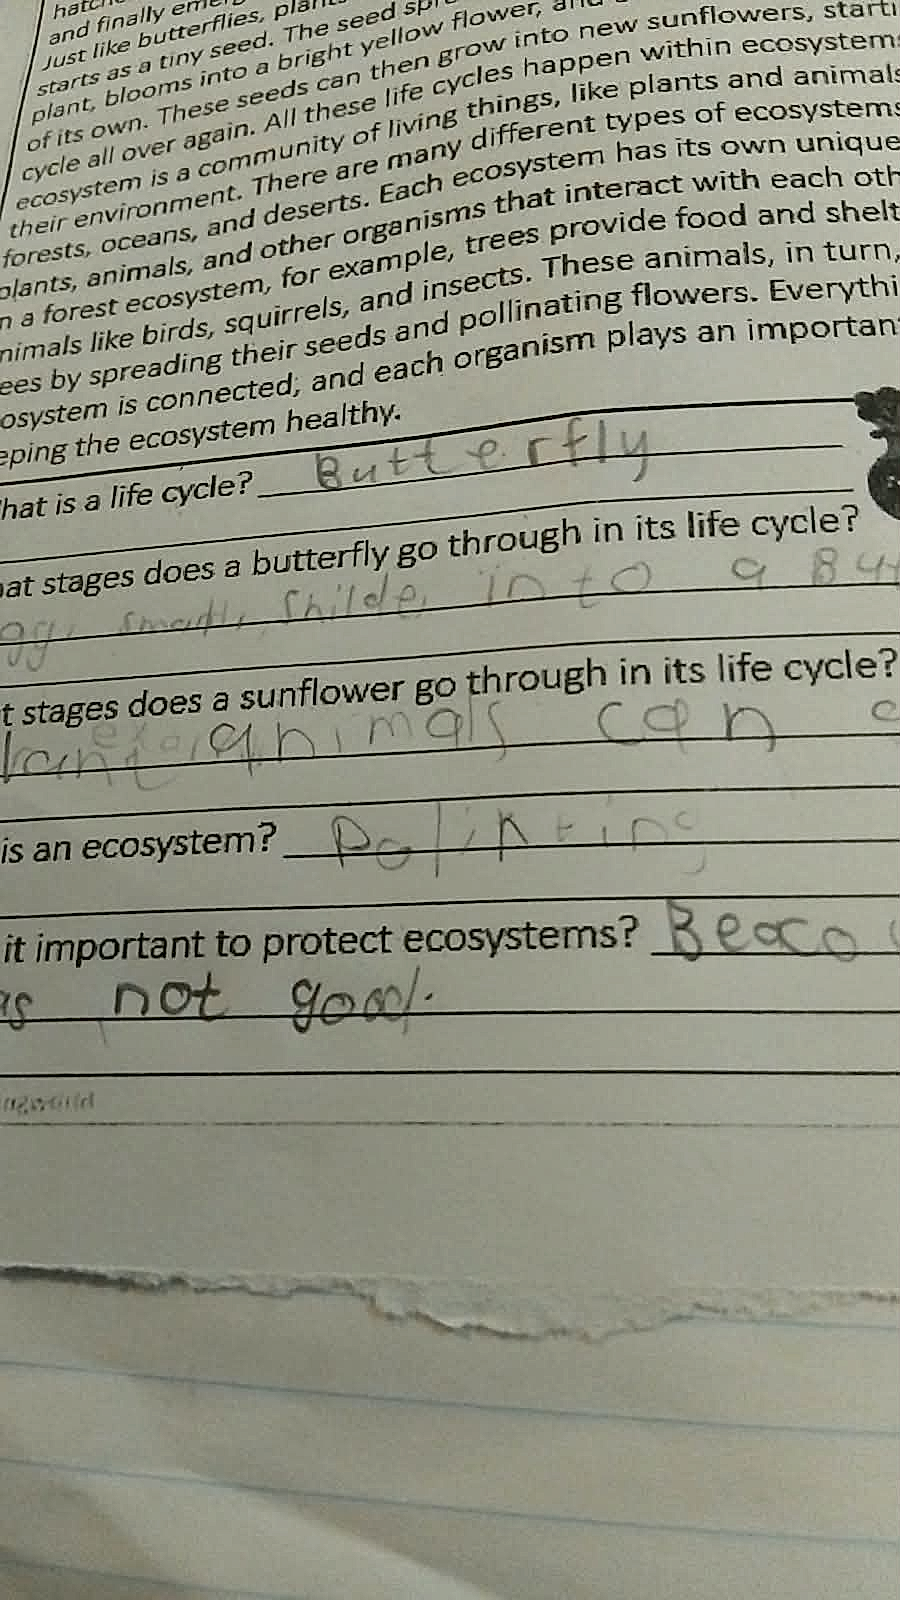 hatch
and finally eme
Just like butterflies, plan
starts as a tiny seed. The seed sp
plant, blooms into a bright yellow flower, and
of its own. These seeds can then grow into new sunflowers, starti
cycle all over again. All these life cycles happen within ecosystem
ecosystem is a community of living things, like plants and animals
their environment. There are many different types of ecosystems
forests, oceans, and deserts. Each ecosystem has its own unique
plants, animals, and other organisms that interact with each oth
n a forest ecosystem, for example, trees provide food and shelt
nimals like birds, squirrels, and insects. These animals, in turn,
ees by spreading their seeds and pollinating flowers. Everythi
osystem is connected, and each organism plays an important
eping the ecosystem healthy.
hat is a life cycle? Butterfly
at stages does a butterfly go through in its life cycle?
gg, into a But
t stages does a sunflower go through in its life cycle?
animals can
is an ecosystem? Polinting
it important to protect ecosystems? Beaco
as not good.